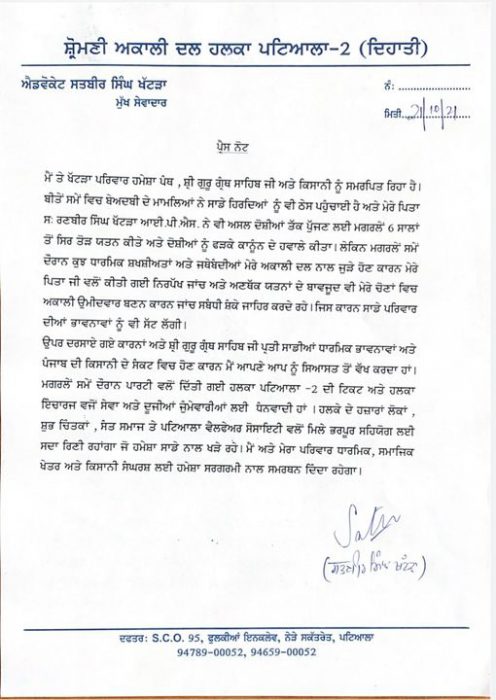 ਸ਼੍ਰੋਮਣੀ ਅਕਾਲੀ ਦਲ ਹਲਕਾ ਪਟਿਆਲਾ-2 (ਦਿਹਾਤੀ)
ਐਡਵੋਕੇਟ ਸਤਬੀਰ ਸਿੰਘ ਖੱਟੜਾ
ਮੁੱਖ ਸੇਵਾਦਾਰ
ਨੰ: ........................
ਮਿਤੀ 21/10/21
ਪ੍ਰੈਸ ਨੋਟ
ਮੈਂ ਤੇ ਖੱਟੜਾ ਪਰਿਵਾਰ ਹਮੇਸ਼ਾ ਪੰਥ , ਸ੍ਰੀ ਗੁਰੂ ਗ੍ਰੰਥ ਸਾਹਿਬ ਜੀ ਅਤੇ ਕਿਸਾਨੀ ਨੂੰ ਸਮਰਪਿਤ ਰਿਹਾ ਹੈ।
ਬੀਤੇ ਸਮੇਂ ਵਿਚ ਬੇਅਦਬੀ ਦੇ ਮਾਮਲਿਆਂ ਨੇ ਸਾਡੇ ਹਿਰਦਿਆਂ ਨੂੰ ਵੀ ਠੇਸ ਪਹੁੰਚਾਈ ਹੈ ਅਤੇ ਮੇਰੇ ਪਿਤਾ
ਸ: ਰਣਬੀਰ ਸਿੰਘ ਖੱਟੜਾ ਆਈ.ਪੀ.ਐਸ. ਨੇ ਵੀ ਅਸਲ ਦੋਸ਼ੀਆਂ ਤੱਕ ਪੁੱਜਣ ਲਈ ਮਗਰਲੇ 6 ਸਾਲਾਂ
ਤੋਂ ਸਿਰ ਤੋੜ ਯਤਨ ਕੀਤੇ ਅਤੇ ਦੋਸ਼ੀਆਂ ਨੂੰ ਫੜਕੇ ਕਾਨੂੰਨ ਦੇ ਹਵਾਲੇ ਕੀਤਾ। ਲੇਕਿਨ ਮਗਰਲੇ ਸਮੇਂ
ਦੌਰਾਨ ਕੁਝ ਧਾਰਮਿਕ ਸ਼ਖਸ਼ੀਅਤਾਂ ਅਤੇ ਜਥੇਬੰਦੀਆਂ ਮੇਰੇ ਅਕਾਲੀ ਦਲ ਨਾਲ ਜੁੜੇ ਹੋਣ ਕਾਰਨ ਮੇਰੇ
ਪਿਤਾ ਜੀ ਵਲੋਂ ਕੀਤੀ ਗਈ ਨਿਰਪੱਖ ਜਾਂਚ ਅਤੇ ਅਣਥੱਕ ਯਤਨਾਂ ਦੇ ਬਾਵਜੂਦ ਵੀ ਮੇਰੇ ਚੋਣਾਂ ਵਿਚ
ਅਕਾਲੀ ਉਮੀਦਵਾਰ ਬਣਨ ਕਾਰਨ ਜਾਂਚ ਸਬੰਧੀ ਸ਼ੰਕੇ ਜਾਹਿਰ ਕਰਦੇ ਰਹੇ। ਜਿਸ ਕਾਰਨ ਸਾਡੇ ਪਰਿਵਾਰ
ਦੀਆਂ ਭਾਵਨਾਵਾਂ ਨੂੰ ਵੀ ਸੱਟ ਲੱਗੀ।
ਉਪਰ ਦਰਸਾਏ ਗਏ ਕਾਰਨਾਂ ਅਤੇ ਸ਼੍ਰੀ ਗੁਰੂ ਗ੍ਰੰਥ ਸਾਹਿਬ ਜੀ ਪ੍ਰਤੀ ਸਾਡੀਆਂ ਧਾਰਮਿਕ ਭਾਵਨਾਵਾਂ ਅਤੇ
ਪੰਜਾਬ ਦੀ ਕਿਸਾਨੀ ਦੇ ਸੰਕਟ ਵਿਚ ਹੋਣ ਕਾਰਨ ਮੈਂ ਆਪਣੇ ਆਪ ਨੂੰ ਸਿਆਸਤ ਤੋਂ ਵੱਖ ਕਰਦਾ ਹਾਂ।
ਮਗਰਲੇ ਸਮੇਂ ਦੌਰਾਨ ਪਾਰਟੀ ਵਲੋਂ ਦਿੱਤੀ ਗਈ ਹਲਕਾ ਪਟਿਆਲਾ -2 ਦੀ ਟਿਕਟ ਅਤੇ ਹਲਕਾ
ਇੰਚਾਰਜ ਵਜੋਂ ਸੇਵਾ ਅਤੇ ਦੂਜੀਆਂ ਜੁੰਮੇਵਾਰੀਆਂ ਲਈ ਧੰਨਵਾਦੀ ਹਾਂ । ਹਲਕੇ ਦੇ ਹਜ਼ਾਰਾਂ ਲੋਕਾਂ ,
ਸ਼ੁਭ ਚਿੰਤਕਾਂ , ਸੰਤ ਸਮਾਜ ਤੇ ਪਟਿਆਲਾ ਵੈਲਫੇਅਰ ਸੋਸਾਇਟੀ ਵਲੋਂ ਮਿਲੇ ਭਰਪੂਰ ਸਹਿਯੋਗ ਲਈ
ਸਦਾ ਰਿਣੀ ਰਹਾਂਗਾ ਜੋ ਹਮੇਸ਼ਾ ਸਾਡੇ ਨਾਲ ਖੜੇ ਰਹੇ। ਮੈਂ ਅਤੇ ਮੇਰਾ ਪਰਿਵਾਰ ਧਾਰਮਿਕ, ਸਮਾਜਿਕ
ਖੇਤਰ ਅਤੇ ਕਿਸਾਨੀ ਸੰਘਰਸ਼ ਲਈ ਹਮੇਸ਼ਾ ਸਰਗਰਮੀ ਨਾਲ ਸਮਰਥਨ ਦਿੰਦਾ ਰਹੇਗਾ।
(ਸਤਬੀਰ ਸਿੰਘ ਖੱਟੜਾ)
ਦਫਤਰ: S.C.O. 95, ਫੂਲਕੀਆਂ ਇਨਕਲੇਵ, ਨੇੜੇ ਸਕੱਤਰੇਤ, ਪਟਿਆਲਾ
94789-00052, 94659-00052